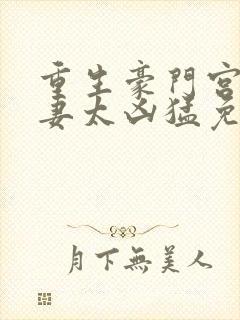 重生豪門宮
妻太凶猛免
月下無美人